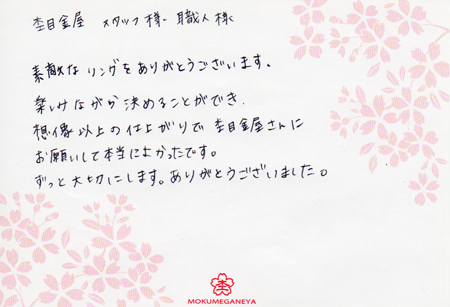 杢目金屋 スタッフ様・職人様
素敵なリングをありがとうございます。
楽しみながら決めることができ、
想像以上の仕上がりで杢目金屋さんに
お願いして本当によかったです。
ずっと大切にします。ありがとうございました。
杢
MOKUMEGANEYA